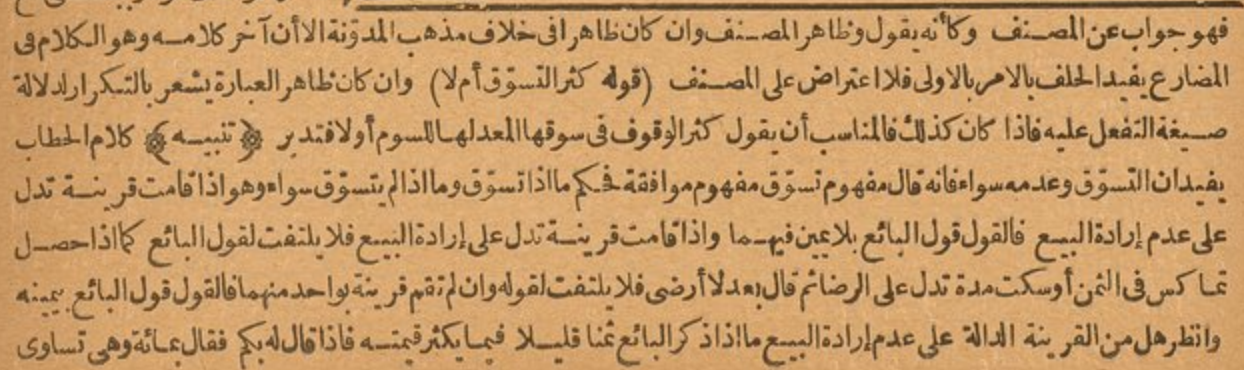 فهو جواب عن المصنف وكأنه يقول وظاهر المصنف وان كان ظاهرا فى خلاف مذهب المدوّنة الا أن آخر كلامه وهو الكلام فى
المضارع يفيد الحلف بالامر بالاولى فلا اعتراض على المصنف (قوله كثر التسوّق أم لا) وان كان ظاهر العبارة يشعر بالتكرار لدلالة
صيغة التفعل عليه فاذا كان كذلك فالمناسب أن يقول كثر الوقوف فى سوقها المعدلها للسوم أولا فتدبر ﴿تنبيه﴾ كلام الحطاب
يفيد ان التسوّق وعدمه سواء فانه قال مفهوم تسوّق مفهوم موافقة فحكم ما اذا تسوّق وما اذا لم يتسوّق سواء وهو اذا قامت قرينة تدل
على عدم إرادة البيع فالقول قول البائع بلا يمين فيهما واذا قامت قرينة تدل على إرادة البيع فلا يلتفت لقول البائع كما اذا حصل
تماكس فى الثمن أو سكت مدة تدل على الرضا ثم قال بعد لا أرضى فلا يلتفت لقوله وان لم تقم قرينة بواحد منهما فالقول قول البائع بيمينه
وانظر هل من القرينة الدالة على عدم إرادة البيع ما اذا ذكر البائع ثمنا قليلا فيما يكثر قيمته فاذا قال له بكم فقال بمائة وهى تساوى